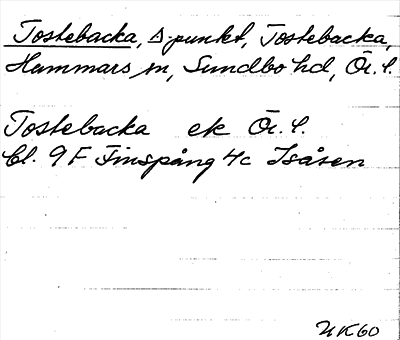 Tostebacka, Δpunkt, Tostebacka,
Hammars sn, Sundbo hd, Ör. l.
Tostebacka ek Ör. l.
Bl. 9 F Finspång 4c Isåsen
NK60